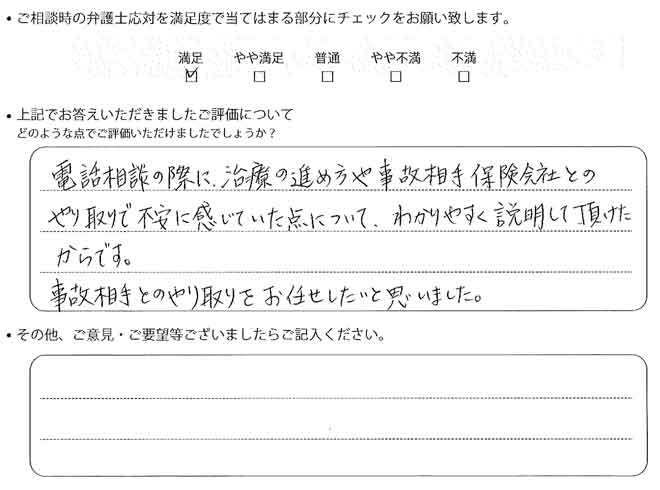 • ご相談時の弁護士応対を満足度で当てはまる部分にチェックをお願い致します。
満足 やや満足 普通 やや不満 不満
☑ □ □ □ □
• 上記でお答えいただきましたご評価について
どのような点でご評価いただけましたでしょうか？
電話相談の際に、治療の進め方や事故相手保険会社との
やり取りで不安に感じていた点について、わかりやすく説明して頂けた
からです。
事故相手とのやり取りをお任せしたいと思いました。
• その他、ご意見・ご要望等ございましたらご記入ください。